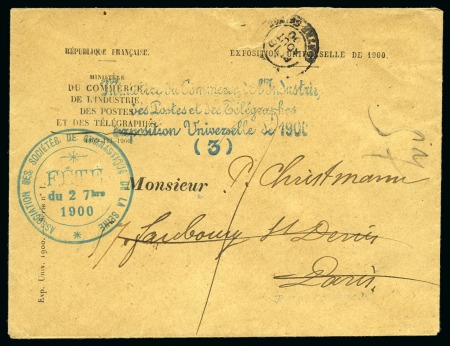 RÉPUBLIQUE FRANÇAISE.
EXPOSITION UNIVERSELLE DE 1900.
MINISTÈRE
DU COMMERCE,
DE L'INDUSTRIE,
DES POSTES
ET DES TÉLÉGRAPHES
Ministère du Commerce, de l'Industrie
des Postes et des Télégraphes
Exposition Universelle de 1900
(3)
ASSOCIATION DES SOCIÉTÉS DE GYMNASTIQUE DE LA SEINE
FÊTE
du 2 7bre
1900
Monsieur P. Christmann
Faubourg St Denis
Paris
Exp. Univ. 1900.